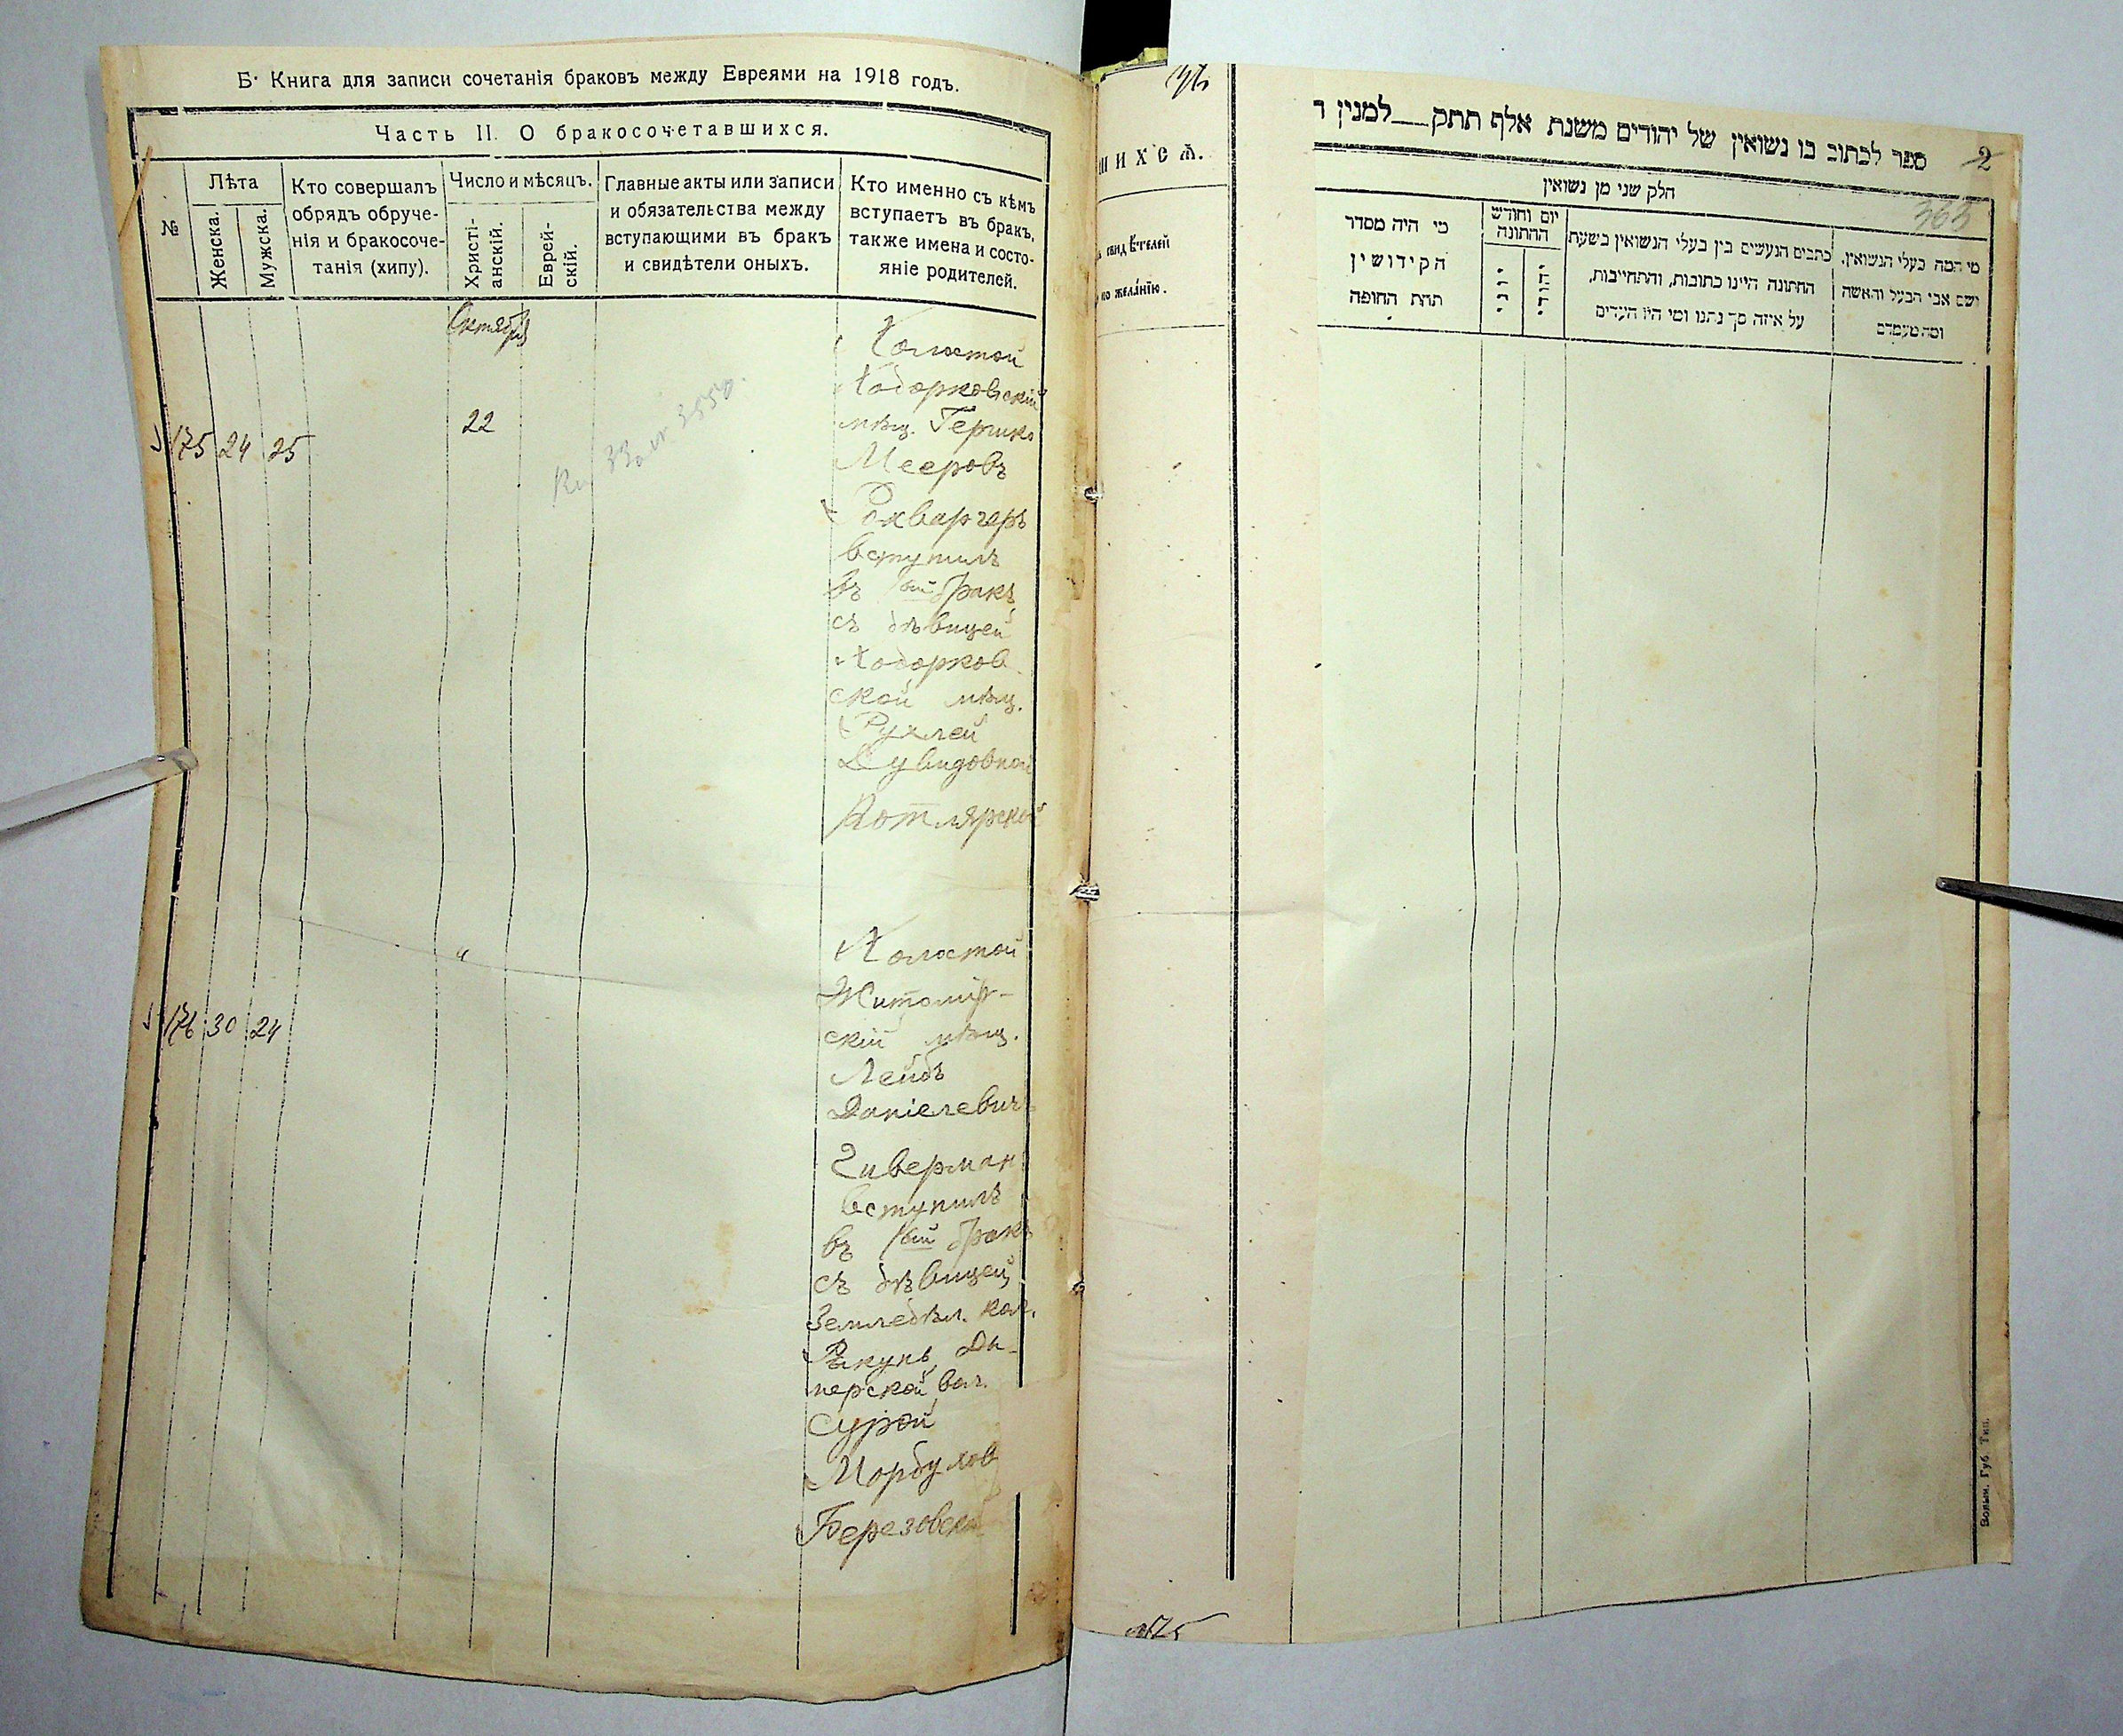 Б. Книга для записи сочетанія браковъ между Евреями на 1918 годъ.
Часть II. О бракосочетавшихся.
№
Лѣта
Женска.
Мужска.
Кто совершалъ
обрядъ обруче-
нія и бракосоче-
танія (хипу).
Число и мѣсяцъ.
Христі-
анскій.
Еврей-
скій.
Главные акты или записи
и обязательства между
вступающими въ бракъ
и свидѣтели оныхъ.
Кто именно съ кѣмъ
вступаетъ въ бракъ,
также имена и состо-
яніе родителей.
Октябрь
175 24 25
22
Холостой
Ходорковскій
мѣщ. Гершко
Мееровъ
Рохваргеръ
вступилъ
въ 1ый бракъ
съ дѣвицей
Ходорков
ской мѣщ.
Рухлей
Дувидовной
Котлярской
176 30 24
"
Холостой
Житомір-
скій мѣщ.
Лейбъ
Даніелевич
Зиверман
вступилъ
въ 1ый бракъ
съ дѣвицей
Земледѣл. кол.
Рыкунь, Ды-
мерской вол.
Сурой
Мордухов
Березовской
шихся.
по желанію.
ספר לכתוב בו נשואין של יהודים משנת אלף תתק__למנין ר
2
363
חלק שני מן נשואין
מי המה בעלי הנשואין,
ושם אבי הבעל והאשה
ומה מעמדם
כתבים הנעשים בין בעלי הנשואין בשעת
החתונה היינו כתובות, והתחייבות,
על איזה סך נתנו ומי היו העדים
יום וחודש
החתונה
יהודי
יוני
מי היה מסדר
הקידושין
תחת החופה
Волын. Губ. Тип.